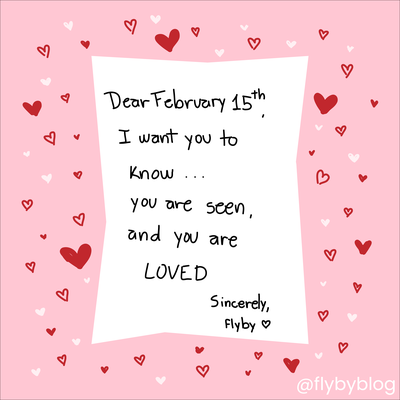 Dear February 15th,
I want you to
know ...
you are seen,
and you are
LOVED
Sincerely,
flyby ♡
@flybyblog